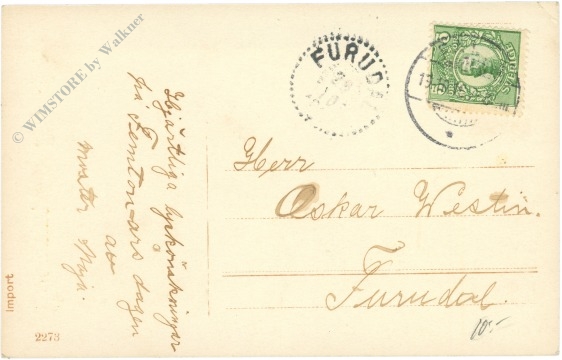 © WIMSTORE by Walkner
Hjärtliga lyckönskningar
på Femton-års dagen
av
moster Maja.
FURUD
SVERIGE
Herr
Oskar Westin.
Furudal.
Import
2273